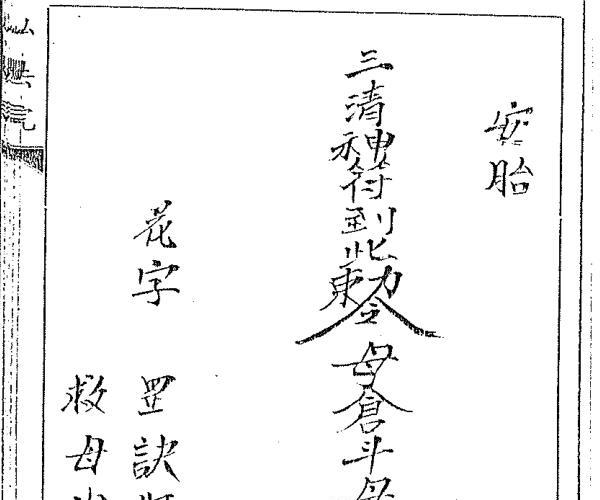 安胎
三清神符到此勅令母倉斗母
花字 罡訣
救母